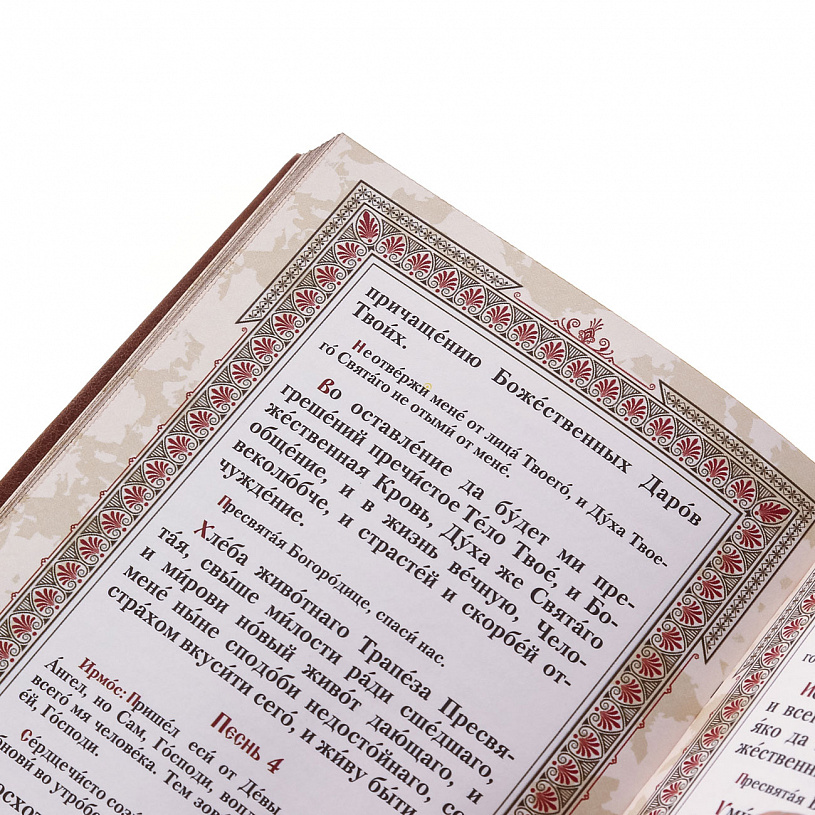 причаще́нию Боже́ственных Даро́в
Твои́х.
Не отве́ржи мене́ от лица́ Твоего́, и Ду́ха Твое-
го́ Свята́го не отыми́ от мене́.
Во оставле́ние да бу́дет ми пре-
греше́ний пречи́стое Те́ло Твое́, и Бо-
же́ственная Кровь, Ду́ха же Свята́го
обще́ние, и в жизнь ве́чную, Чело-
веколю́бче, и страсте́й и скорбе́й от-
чужде́ние.
Пресвята́я Богоро́дице, спаси́ нас.
Хле́ба живо́тнаго Трапе́за Пресвя-
та́я, свы́ше ми́лости ра́ди сше́дшаго,
и ми́рови но́вый живо́т даю́щаго, и
мене́ ны́не сподо́би недосто́йнаго, со
стра́хом вкуси́ти сего́, и жи́ву бы́ти
Песнь 4
Ирмо́с: Прише́л еси́ от Де́вы
А́нгел, но Сам, Го́споди, вопл
всего́ мя челове́ка. Тем зов
ей, Го́споди.
Се́рдце чи́сто сози́
бнови́ во утро́бе
го́
и все
я́ко да
же́ственн
Пресвята́я